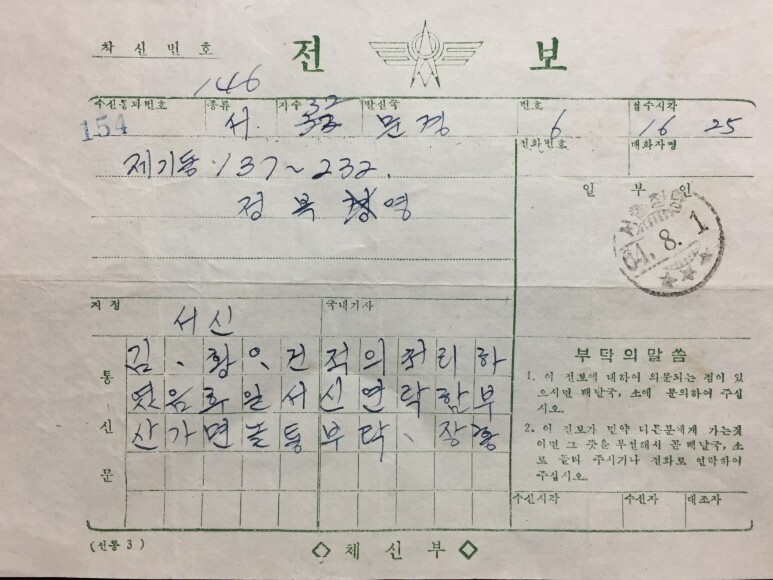 착신번호
전 보
146
수신통과번호 종류 자수 발신국 번호 접수시각
154 서. 32 문경 6 16 25
전화번호 대화자명
제기동 137~232.
정복영
일부인
64. 8. 1
지정 국내기사
서신
통신문
김、황、건적의처리하
였음화일서신연락함부
산가면 통부탁、장
부탁의말씀
1. 이 전보에 대하여 의문되는 점이 있
으시면 배달국, 소에 문의하여 주십
시오.
2. 이 전보가 만약 다른분에게 가는것
이면 그 뜻을 부전해서 곧 배달국, 소
로 돌려 주시거나 전화로 연락하여
주십시오.
수신시각 수신자 대조자
(전통 3)
체신부